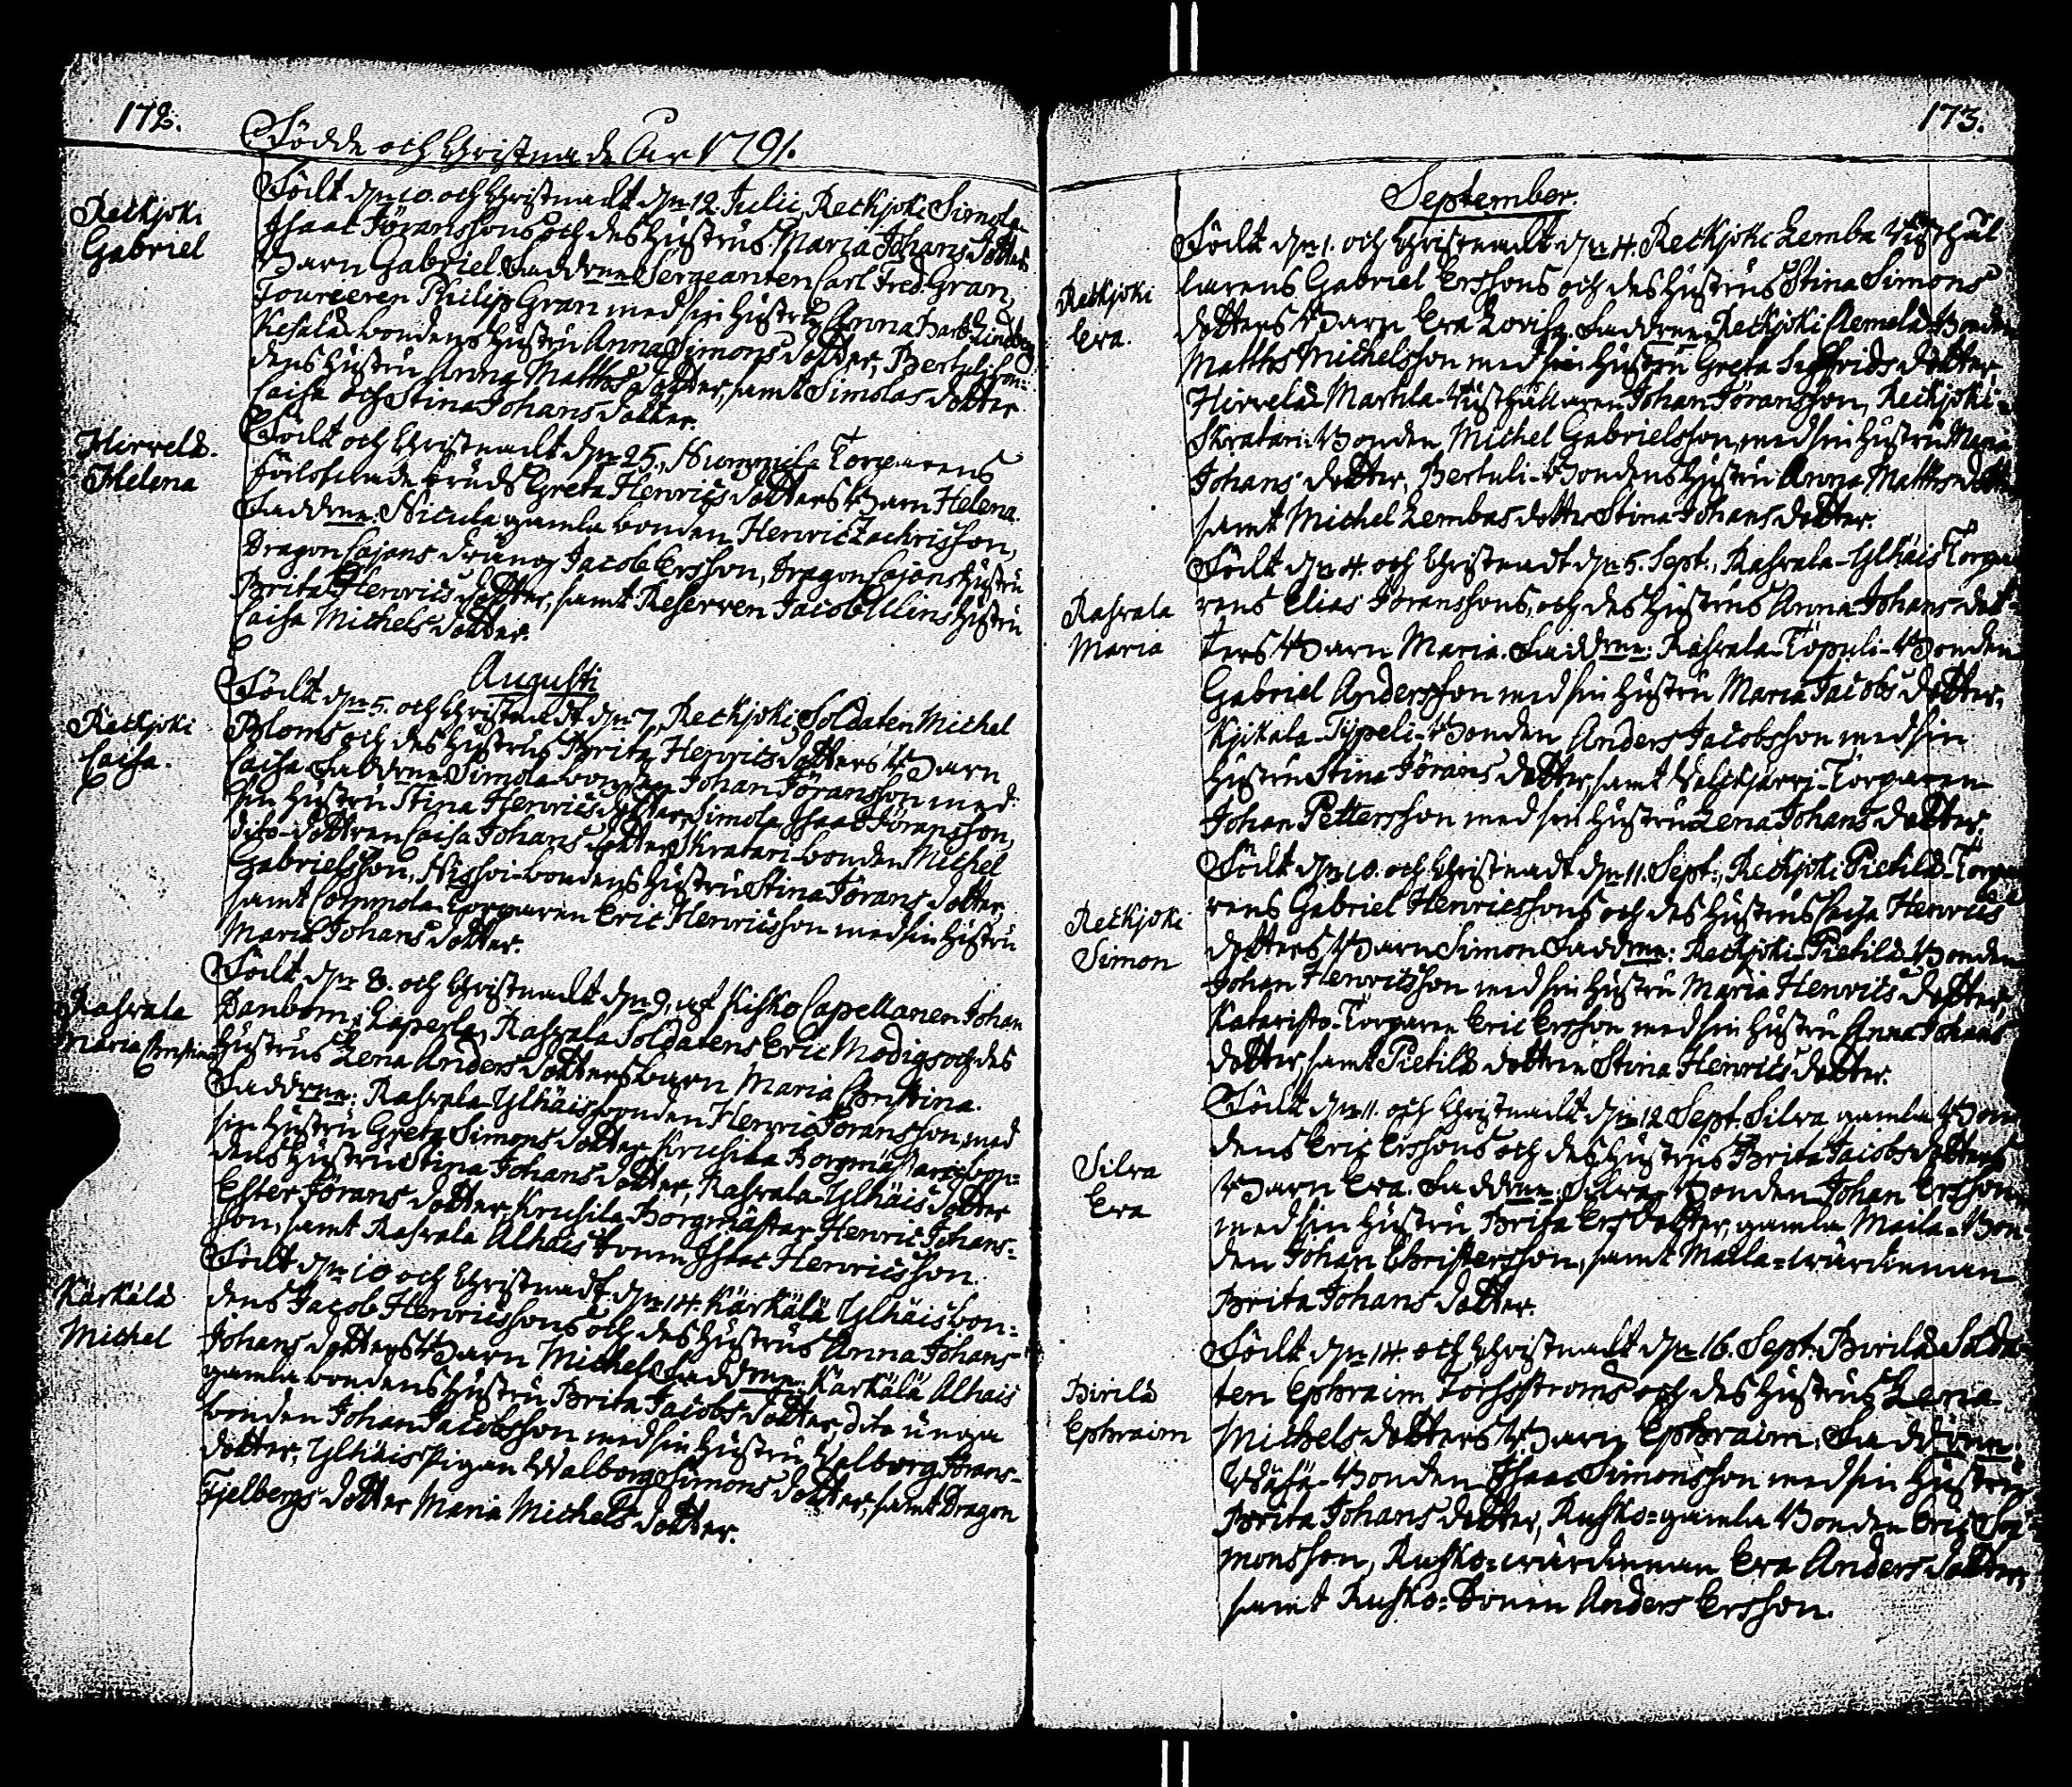 172.
Födde och Christnade År 1791.
Reckjoki
Gabriel
Födt den 10. och Christnadt den 12. Julii, Reckjoki Simola
Isaac Jöranssons och des Hustrus Maria Johans dotters
Barn Gabriel. Faddrne: Sergeanten Carl Fred. Gran,
Foureren Philip Gran med sin Hustru Anna Barb. Lindberg
Kesälä-bondens Hustru Anna Simons dotter, Bertuli bon-
dens Hustru Anna Matths dotter, samt Simolas dotter
Caisa och Stina Johans dotter.
Hirvelä.
Helena
Födt och Christnadt den 25. Nummila Torparens
förlofvade bruds Greta Henrics dotters Barn Helena.
Faddrne: Nicula gamla bonden Henric Zachrisson,
Dragon Cajans dräng Jacob Ersson, Dragon Cajans Hustru
Brita Henrics dotter, samt Reserven Jacob Ulins Hustru
Caisa Michels dotter.
Augusti
Reckjoki
Caisa.
Födt den 5. och Christnadt den 7, Reckjoki Soldaten Michel
Bloms och des Hustrus Brita Henrics dotters Barn
Caisa Faddrne: Simola-bonden Johan Jöransson med
sin Hustru Stina Henrics dotter, Simola Isaac Jöransson,
dito-dottren Caisa Johans dotter, Skratari-bonden Michel
Gabrielsson, Nissoi-bondens Hustru Stina Jörans dotter,
samt Commola-Torparen Eric Henricsson med sin Hustru
Maria Johans dotter.
Rahvala
Maria Christina
Födt den 8. och Christnadt den 9, af Kisko Capellanen Johan
Danbom, Kaperla, Rahvala Soldatens Eric Modigs och des
Hustrus Lena Anders dotters barn Maria Christina.
Faddrne: Rahvala-Ylhäis bonden Henric Jöransson, med
sin Hustru Greta Simons dotter, Krusila Borgmästare bon-
dens Hustru Stina Johans dotter, Rahvala-Ylhäis dotter
Ester Jörans dotter, Krusila Borgmästar Henric Johans-
son, samt Rahvala Alhäis sonen Isaac Henricsson.
Kärkälä
Michel
Födt den 10 och Christnadt den 14. Kärkälä Ylhäis bon-
dens Jacob Henricssons och des Hustrus Anna Johans
Johans dotters Barn Michel. Faddrne: Kärkälä Alhäis
gamla bondens Hustru Brita Jacobs dotter, dito unga
bonden Johan Jacobsson med sin Hustru Valborg Jörans-
dotter, Ylhäis Pigan Walborg Simons dotter, samt Dragon
Fjelbergs dotter Maria Michels dotter.
173.
September.
Reckjoki
Eva.
Födt den 1. och Christnadt den 4. Reckjoki Lemba Rusthål-
larens Gabriel Erssons och des Hustrus Stina Simons
dotters Barn Eva Lovisa. Faddrne: Reckjoki Aemälä-Bonden
Matths Michelsson med sin Hustru Greta Sigfrids dotter,
Hirvelä-Markila-Rusthållaren Johan Jöransson, Reckjoki-
Skratari-Bonden Michel Gabrielsson, med sin Hustru Maria
Johans dotter, Bertuli-Bondens Hustru Anna Matths dotter
samt Michel Lembas dotter Stina Johans dotter.
Rahvala
Maria
Födt den 4. och Christnadt den 5. Sept., Rahvala-Ylhäis Torpa-
rens Elias Jöranssons, och des Hustrus Anna Johans dot-
ters Barn Maria. Faddrne: Rahvala-Töpuli-Bonden
Gabriel Andersson med sin Hustru Maria Jacobs dotter,
Kjikala-Typeli-Bonden Anders Jacobsson med sin
Hustru Stina Jörans dotter, samt Valkjärvi-Torparen
Johan Pettersson med sin Hustru Lena Johans dotter.
Reckjoki
Simon
Födt den 10. och Christnadt den 11. Sept., Reckjoki Pietilä-Torpa-
rens Gabriel Henricssons och des Hustrus Caisa Henrics
dotters Barn Simon Faddrne: Reckjoki-Pietilä-Bonden
Johan Henricsson med sin Hustru Maria Henrics dotter,
Kataristo-Torparen Eric Ersson med sin Hustru Anna Johans
dotter, samt Pietilä dottren Stina Henrics dotter.
Silva
Eva
Födt den 11. och Christnadt den 12 Sept. Silva gamla Bon-
dens Eric Erssons och des Hustrus Brita Jacobs dotters
Barn Eva. Faddrne: Silva Bonden Johan Ersson
med sin Hustru Brita Ers dotter, gamla Maila-Bon-
den Johan Christersson, samt Maila-wärdinnan
Brita Johans dotter.
Pirilä
Ephraim
Födt den 14. och Christnadt den 16. Sept. Pirilä Solda-
ten Ephraim Forsströms och des Hustrus Lena
Michels dotters Barn Ephraim. Faddrne:
Wäsä-Bonden Isaac Simonsson med sin Hustru
Brita Johans dotter, Rusko-gamla Bonden Eric Si-
monsson, Rusko-wärdinnan Eva Anders dotter,
samt Rusko-Sonen Anders Ersson.